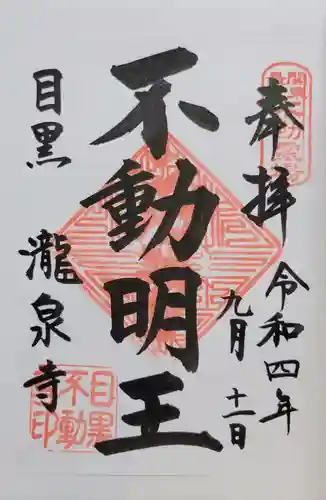 奉拝
令和四年
九月十一日
不動明王
目黒
瀧泉寺
目黒
不動
印